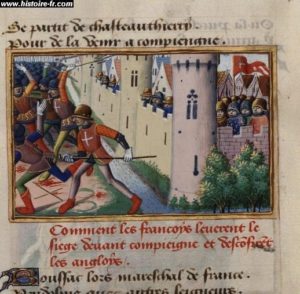 www.histoire-fr.com
Se partit de chasteauthierry
Pour de la venir a compiengne.
Comment les francois leuerent le
siege deuant compiengne et desconfirent
les anglois.
Poussac lors mareschal de france.
autres seigneurs